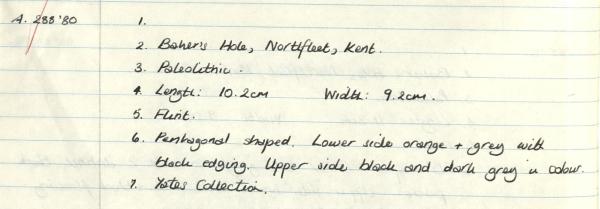 A. 288 '80 1.
2. Baker's Hole, Northfleet, Kent.
3. Paleolithic.
4. Length: 10.2cm Width: 9.2cm.
5. Flint.
6. Penhagonal shaped. Lower side orange + grey with
black edging. Upper side black and dark grey in colour.
7. Yates Collection.